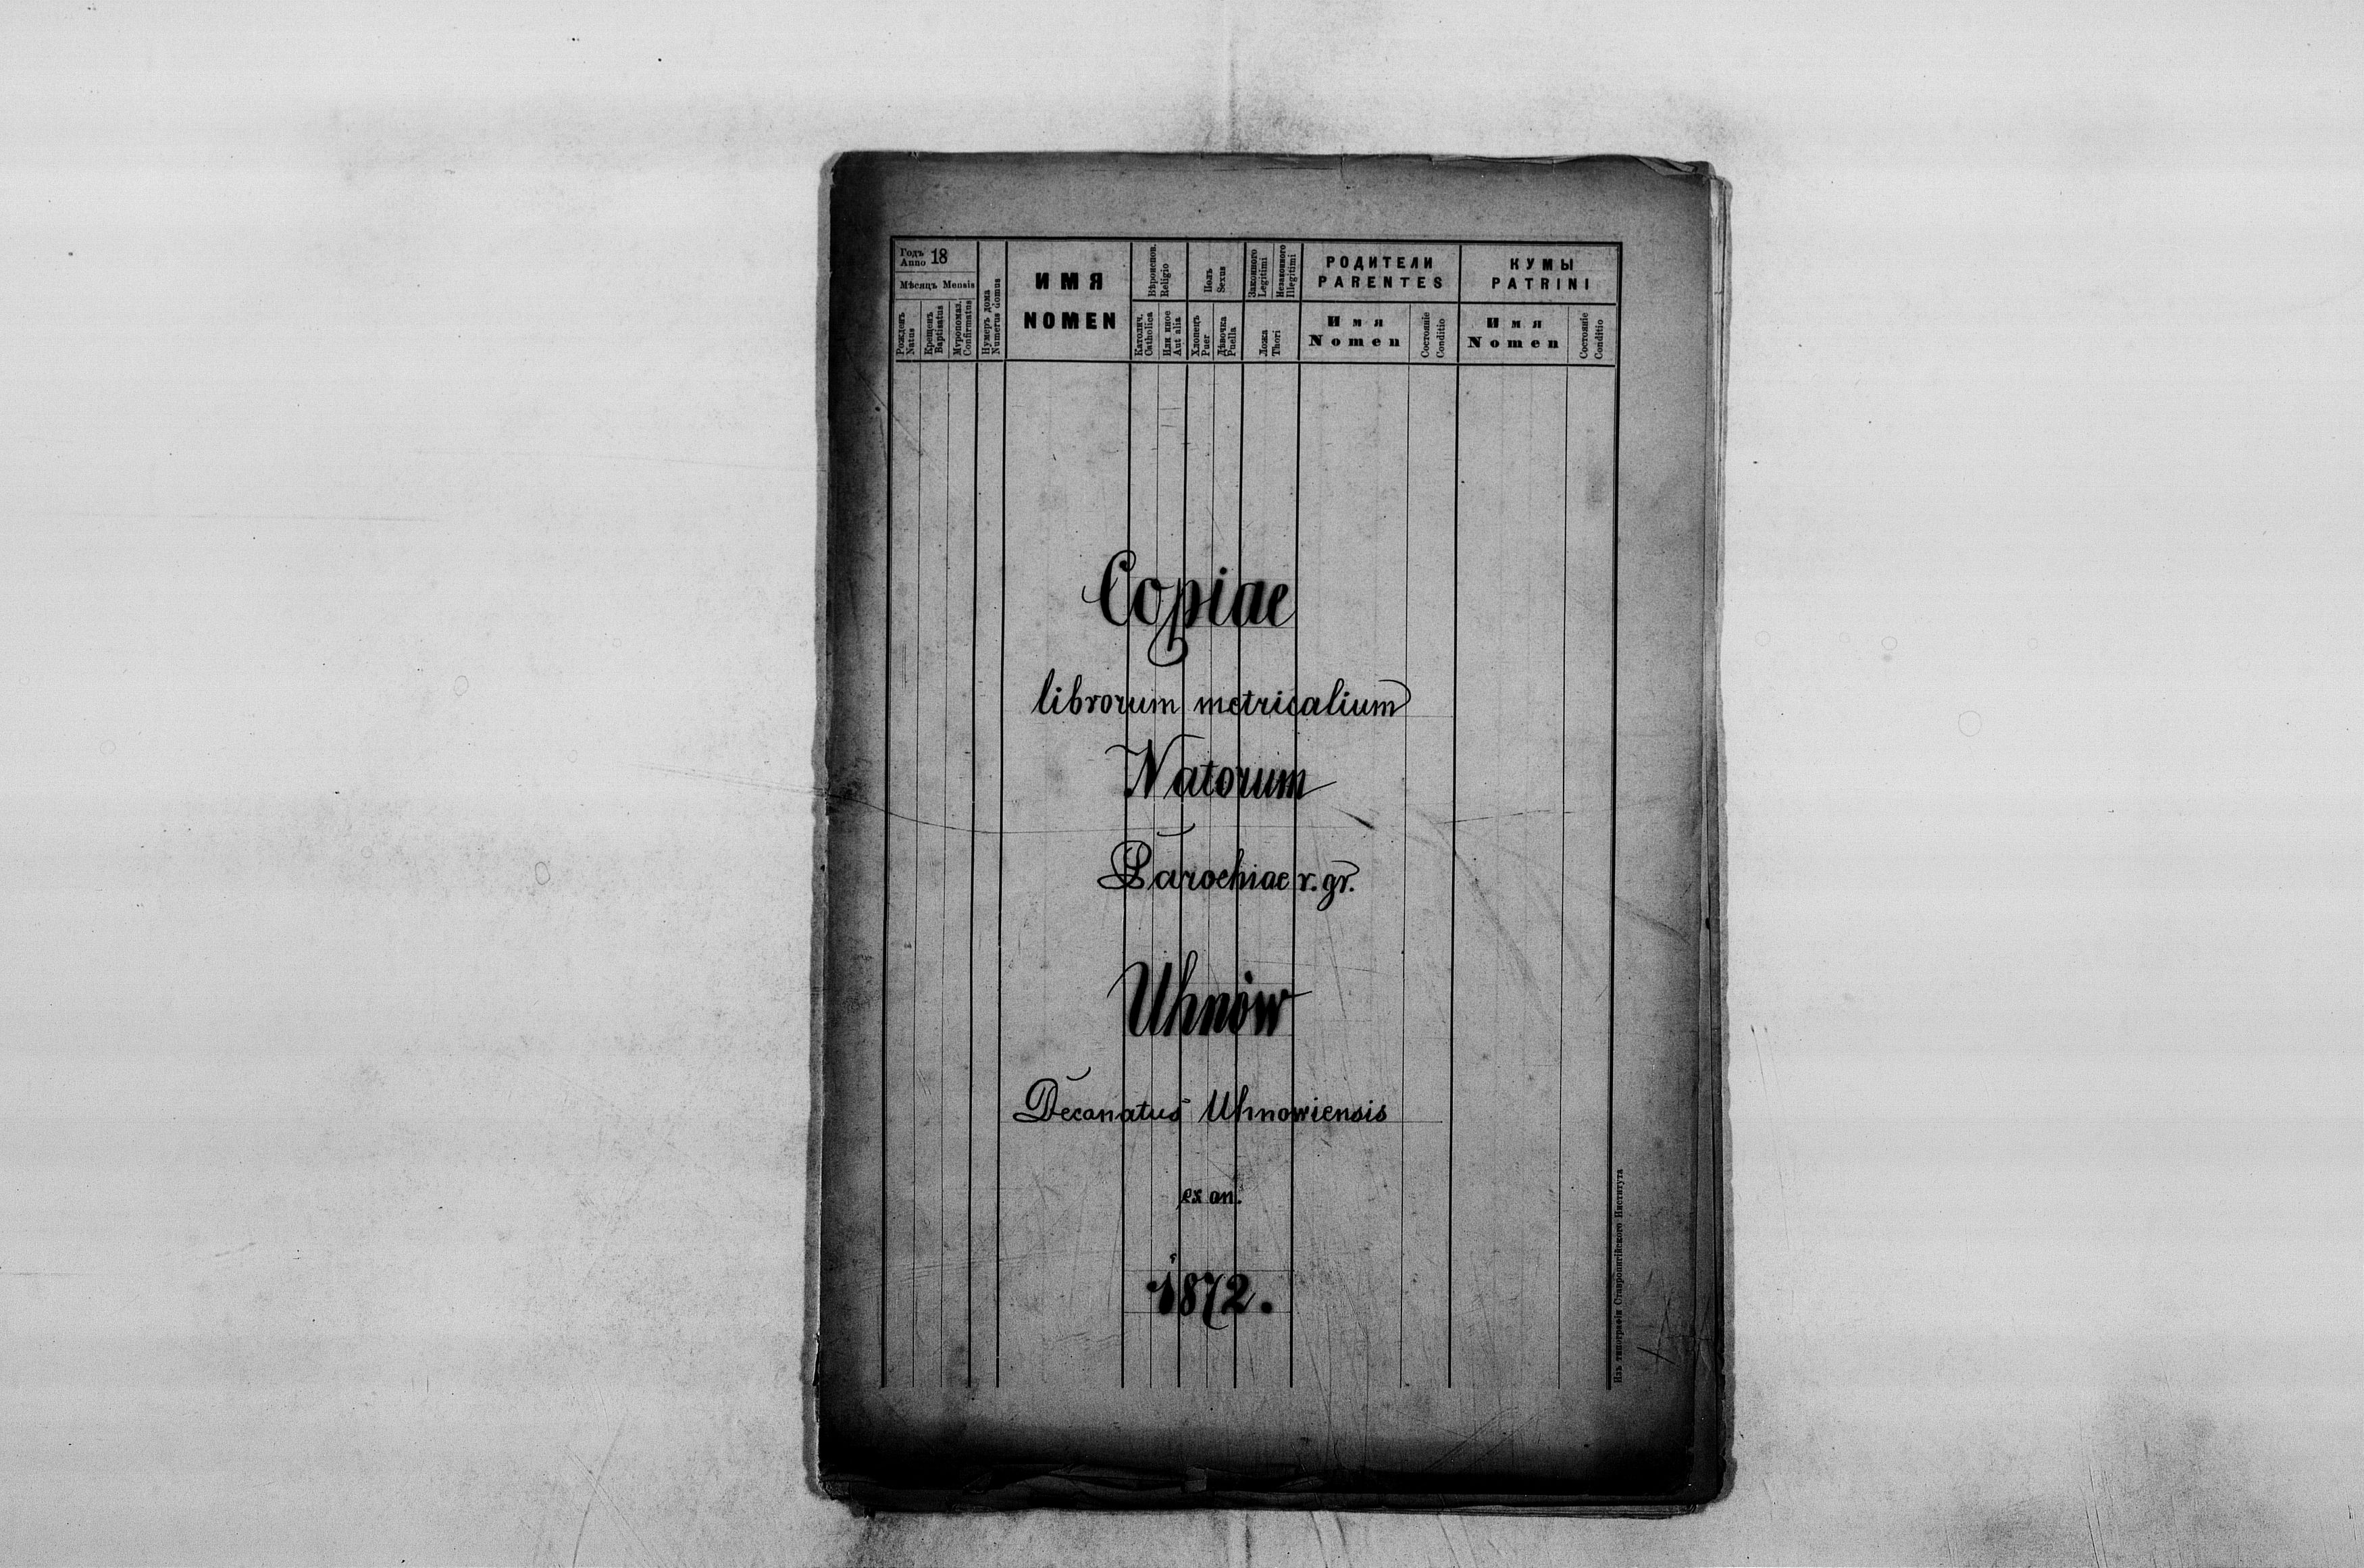 Годъ 18
Anno
Мѣсяцъ Mensis
Рожденъ
Natus
Крещенъ
Baptisatus
Мѵропомаз.
Confirmatus
Нумеръ дома
Numerus domus
ИМЯ
NOMEN
Вѣроиспов.
Religio
Католич.
Catholica
Или иное
Aut alia
Полъ
Sexus
Хлопецъ
Puer
Дѣвочка
Puella
Законного
Legitimi
Незаконного
Illegitimi
Ложа
Thori
РОДИТЕЛИ
PARENTES
Имя
Nomen
Состояніе
Conditio
КУМЫ
PATRINI
Имя
Nomen
Состояніе
Conditio
Copiae
librorum metricalium
Natorum
Parochiae r. gr.
Uhnów
Decanatus Uhnowiensis
ex an.
1872.
Изъ типографіи Ставропигійского Института